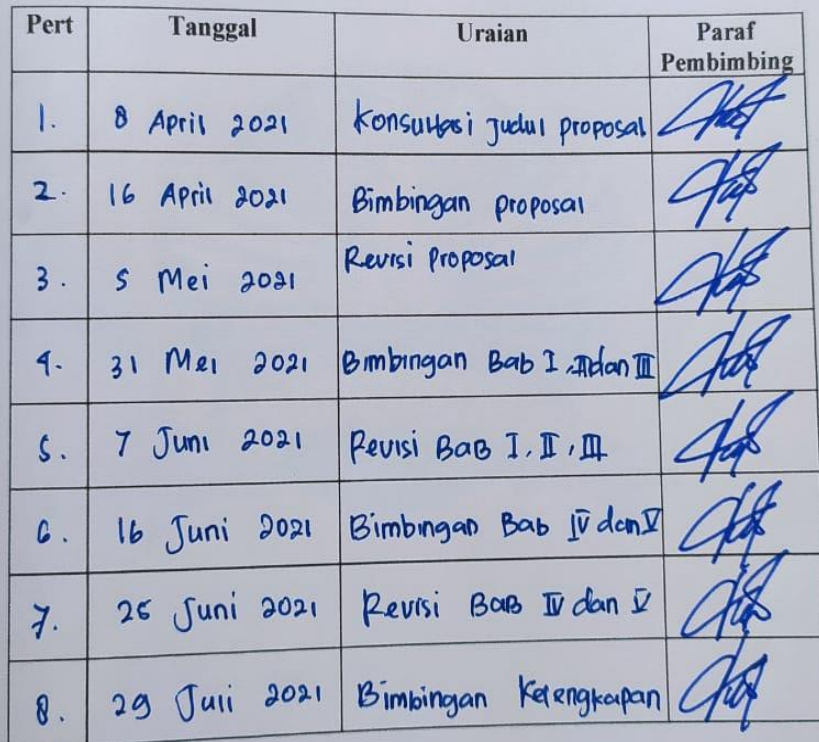 Pert Tanggal Uraian Paraf Pembimbing
1. 8 April 2021 Konsultasi Judul Proposal
2. 16 April 2021 Bimbingan proposal
3. 5 Mei 2021 Revisi Proposal
4. 31 Mei 2021 Bimbingan Bab I, II dan III
5. 7 Juni 2021 Revisi BaB I, II, III
6. 16 Juni 2021 Bimbingan Bab IV dan V
7. Juni 2021 Revisi BaB IV dan V
8. 29 Juli 2021 Bimbingan Kelengkapan